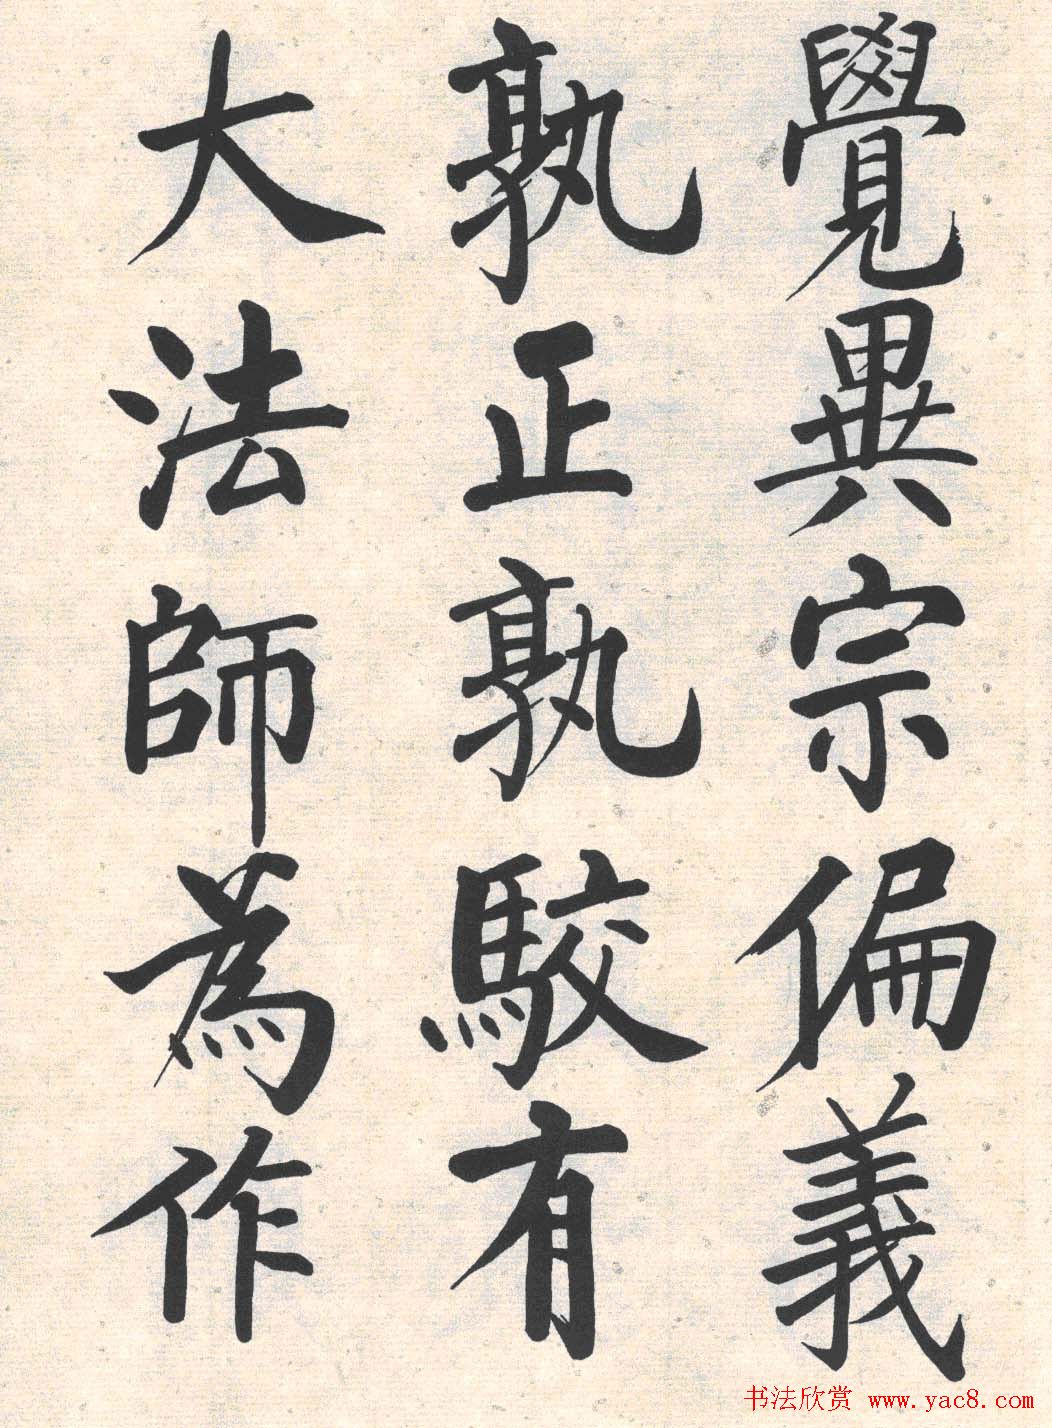 覺異宗偏義
孰正孰駮有
大法師為作
书法欣赏 www.yac8.com